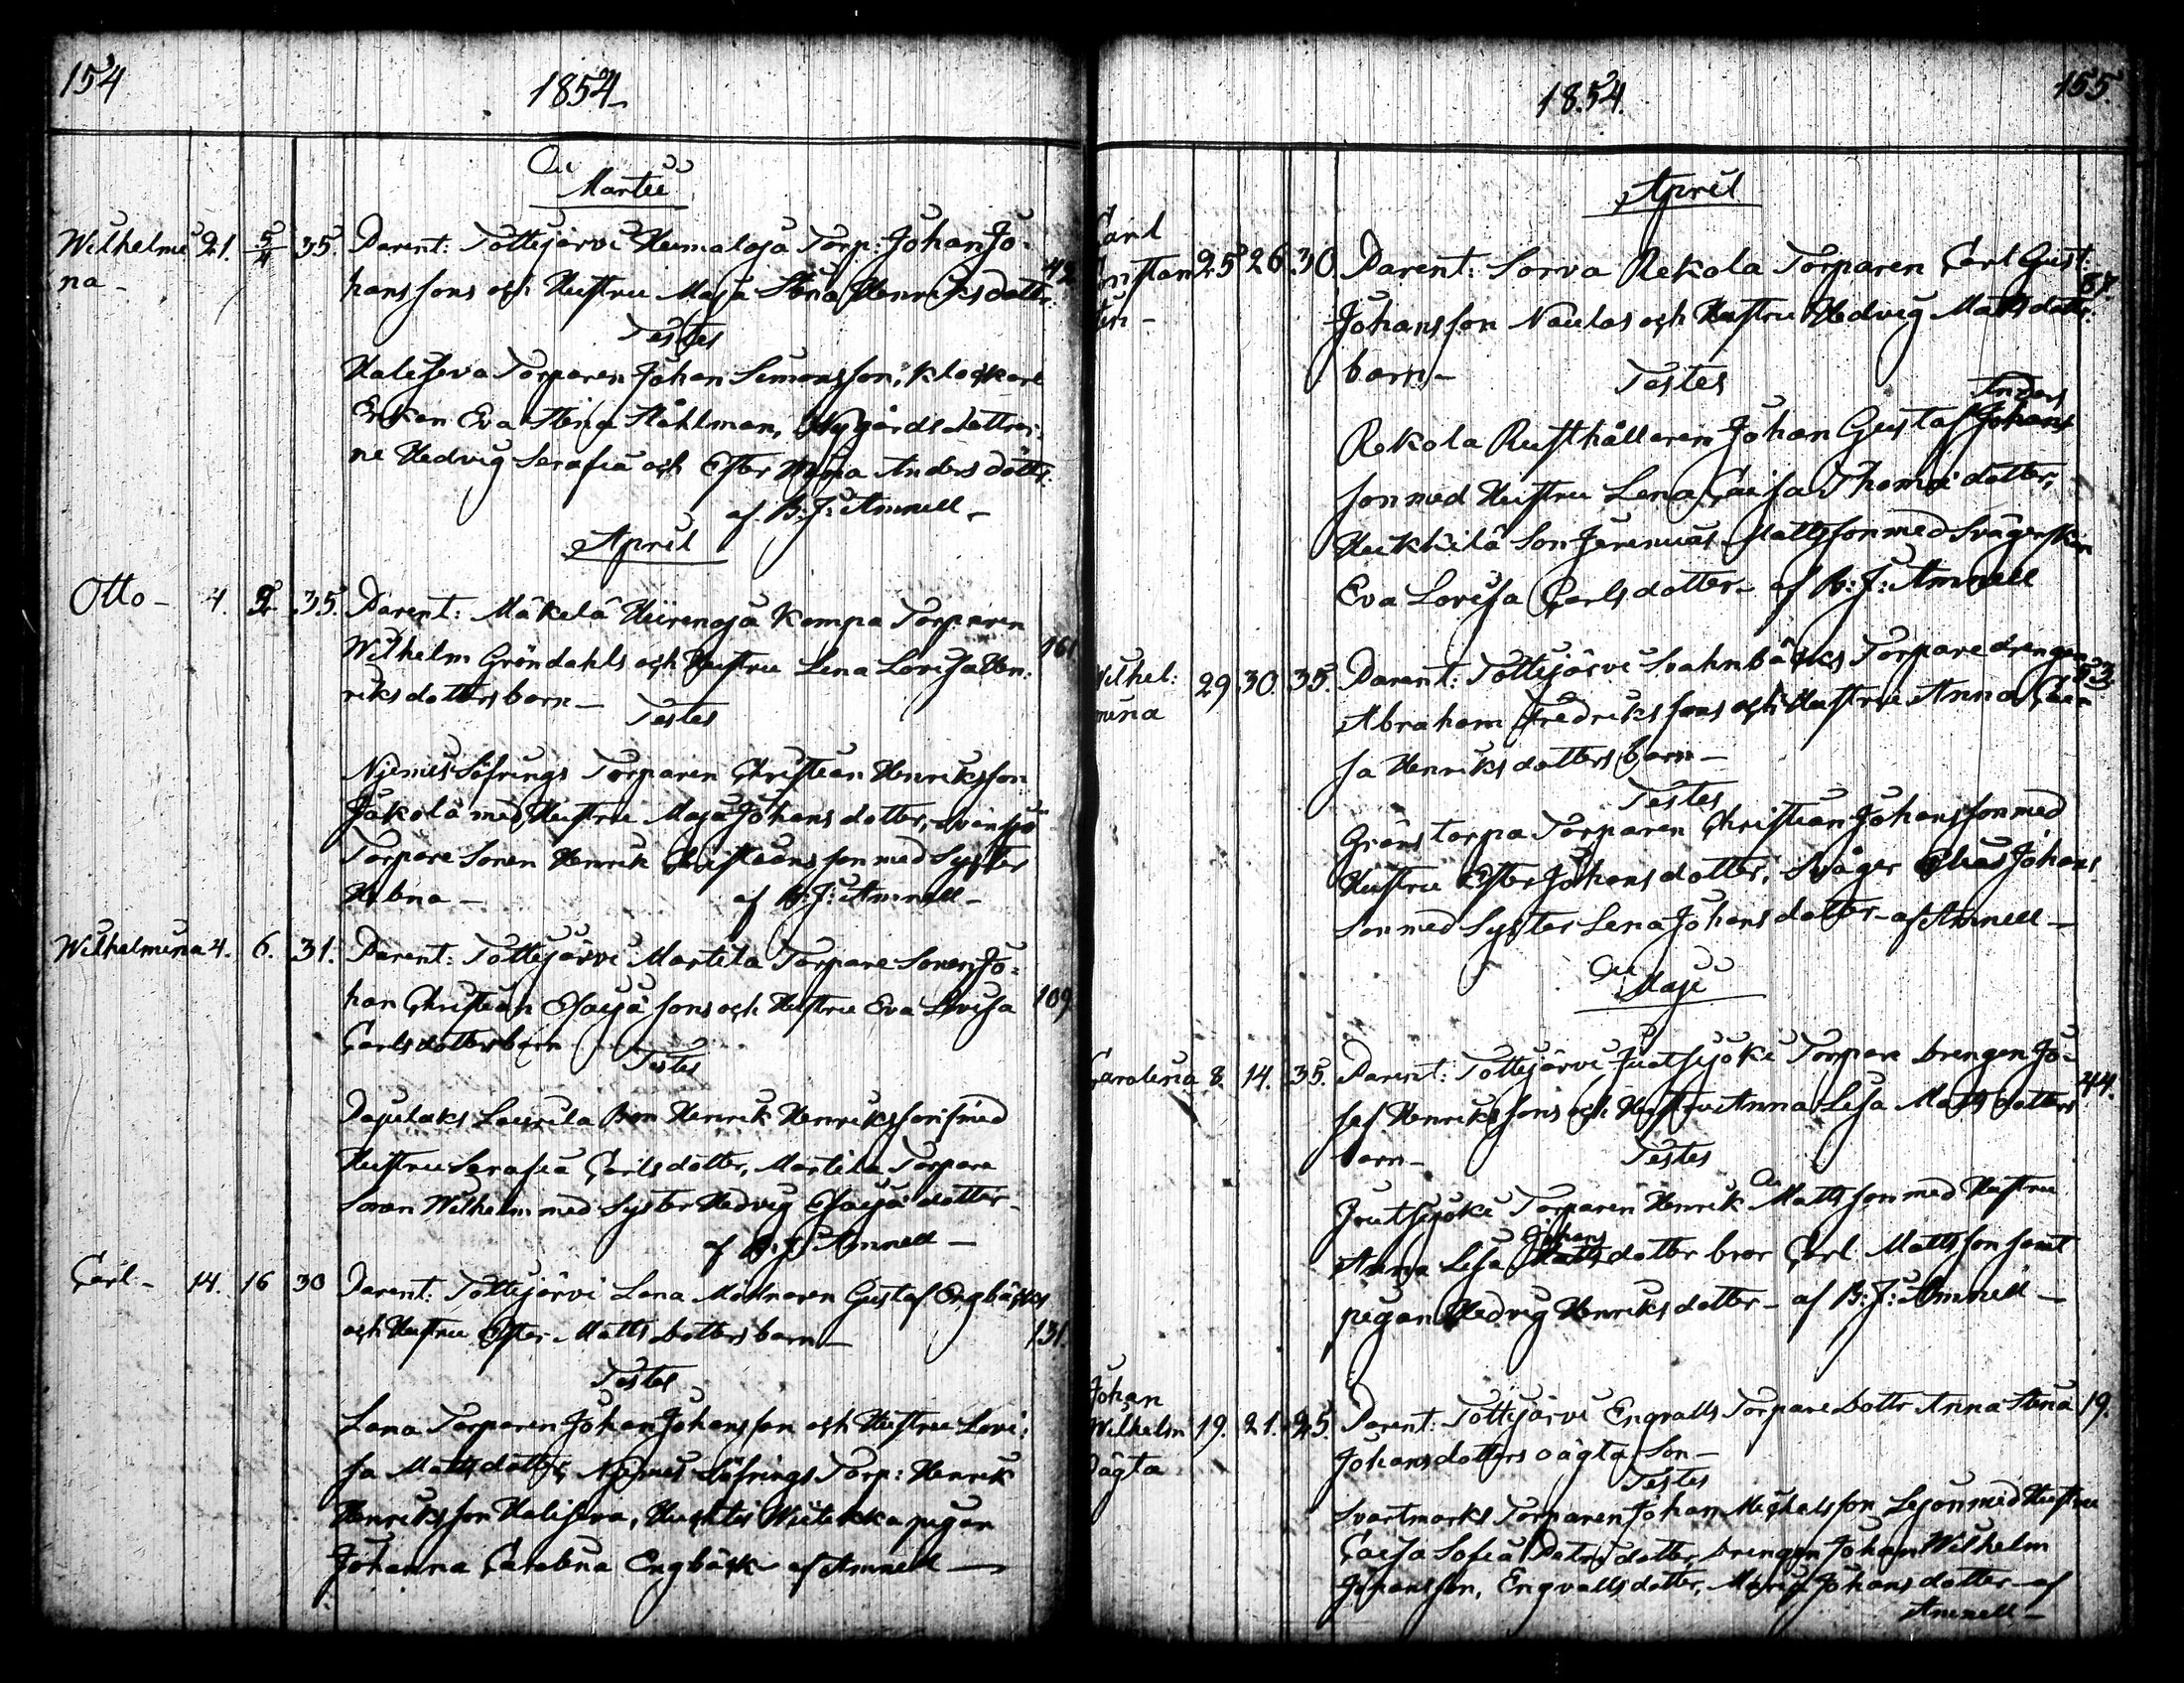 154
1854
Martii
Wilhelmi 21. 5/4 35. Parent: Tottijärvi Heinaloja Torp: Johan Jo-
na hanssons och Hustru Maja Stina Henriksdotter 42
Testes
Haliseva Torparen Johan Simonsson, Klockare
Enkan Eva Stina Ståhlman, Nygårds dottrar-
ne Hedvig Serafia och Ester Mina Anders dött:
af B: J: Amnell
April
Otto 4. 5. 35. Parent: Mäkelä Hiirenoja Kampa Torparen
Wilhelm Gröndahls och Hustru Lena Lovisa Hen- 161
riksdotters barn
Testes
Njemis Löfrings Torparen Christian Henriksson
Jakola med Hustru Maja Johans dotter,
Torpare Sonen Henrik Christiansson med Syster
Helena af B: J: Amnell
Wilhelmina 4. 6. 31. Parent: Tottijärvi Martila Torpare Sonen Jo-
han Christian Esaiæ sons och Hustru Eva Lovisa 109
Carlsdotters barn
Testes
Laurila Bon Henrik Henriksson med
Hustru Serafia Carlsdotter, Martila Torpare
Sonen Wilhelm med Syster Hedvig Esaiæ dotter
af B: J: Amnell
Carl 14. 16 30 Parent: Tottijärvi Lana Mölnaren Gustaf Engbäcks
och Hustru Ester Matts dotters barn 131.
Testes
Lana Torparen Johan Johansson och Hustru Lovi-
sa Mattsdotter, Njemis Löfrings Torp: Henrik
Henriksson Haliseva, pigan
Johanna Carolina Engbäck af Amnell
155.
1854.
April
Carl
25 26 30. Parent: Sorva Rekola Torparen Carl Gust: 87.
Johansson Naulas och Hustru Hedvig Mattsdotter:
barn
Testes
Anders
Rekola Rusthållaren Johan Gustaf Johans
son med Hustru Lena Caisa Thomæ dotter,
Heikkilä Son Jeremias Mattsson med Svägerskan
Eva Lovisa Carlsdotter af B: J: Amnell
Wilhel: 29 30. 35. Parent: Tottijärvi Svahnbäcks Torpare drengen 53
mina Abraham Fredrikssons och Hustru Anna Cai-
sa Henriksdotters barn
Testes
Gränstorpa Torparen Christian Johansson med
Hustru Ester Johansdotter, Svåger Elias Johans
son med Syster Lena Johansdotter af Amnell
Maji
Carolina 8. 14. 35. Parent: Tottijärvi Juutsijoki Torpare drengen Jo- 44.
sef Henrikssons och Hustru Anna Lisa Mattsdotters
barn
Testes
Juutsijoki Torparen Henrik Mattsson med Hustru
Johans
Anna Lisa Matts dotter bror Carl Mattsson samt
pigan Hedvig Henriksdotter af B: J: Amnell
Johan
Wilhelm 19. 21. 25. Parent: Tottijärvi Engvalls Torpare Dottr Anna Stina 19.
oägta Johansdotters oägta Son
Testes
Svartmarks Torparen Johan Michelsson Lejon med Hustru
Caisa Sofia Petri dotter, drengen Johan Wilhelm
Johansson, Engvalls dotter, Maria Johansdotter af
Amnell